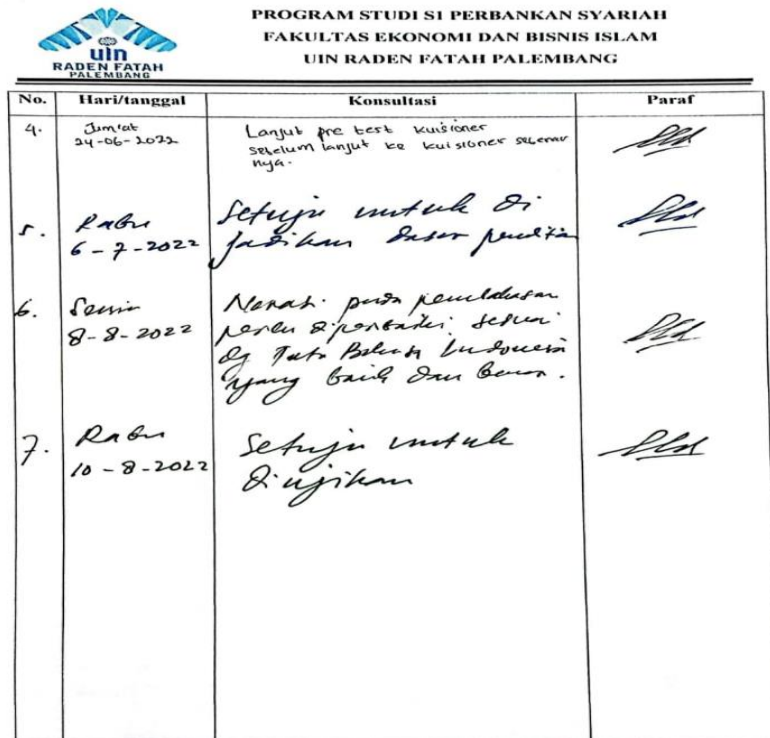 PROGRAM STUDI S1 PERBANKAN SYARIAH
FAKULTAS EKONOMI DAN BISNIS ISLAM
UIN RADEN FATAH PALEMBANG
uin
RADEN FATAH
PALEMBANG
No. Hari/tanggal Konsultasi Paraf
4. Jum'at
24-06-2022
Lanjut pre test kuisioner
sebelum lanjut ke kuisioner sebenar
nya.
5. Rabu
6-7-2022
Setuju untuk di
jadikan dasar penelitian
6. Senin
8-8-2022
Narasi pada pembahasan
perlu diperbaiki sesuai
dg Tata Bahasa Indonesia
yang baik dan benar.
7. Rabu
10-8-2022
Setuju untuk
diujikan